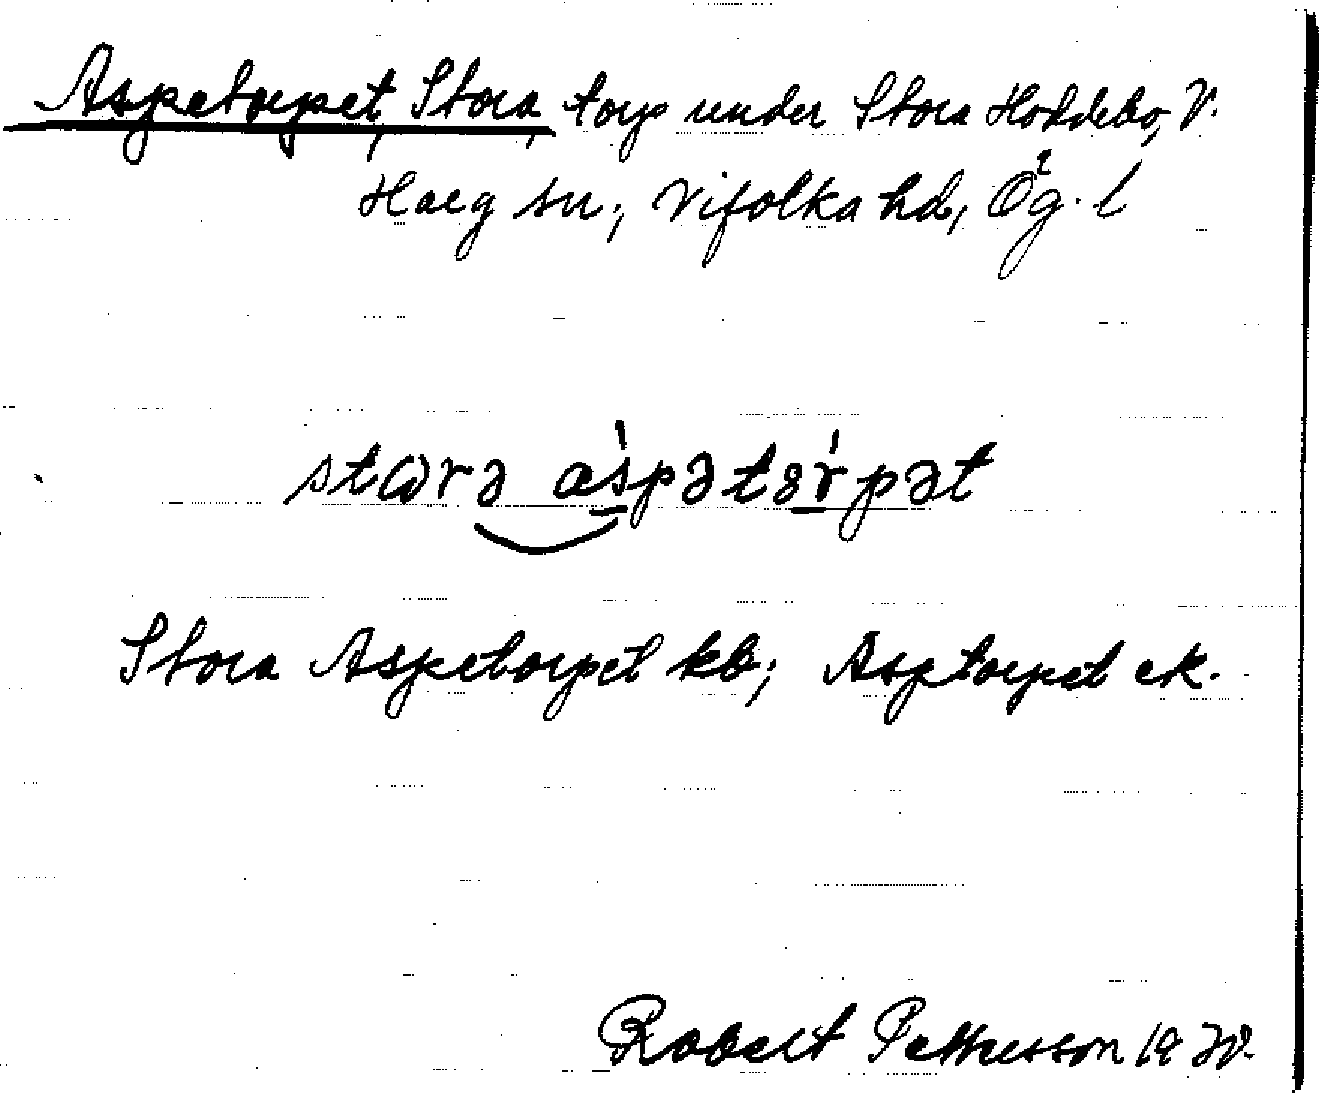 Aspetorpet, Stora, torp under Stora Hoddebo, V.
Harg sn; Vifolka hd, Ög. l
stωrə aspətȣrpət
Stora Aspetorpet kb; Asptorpet ek.
Robert Pettersson